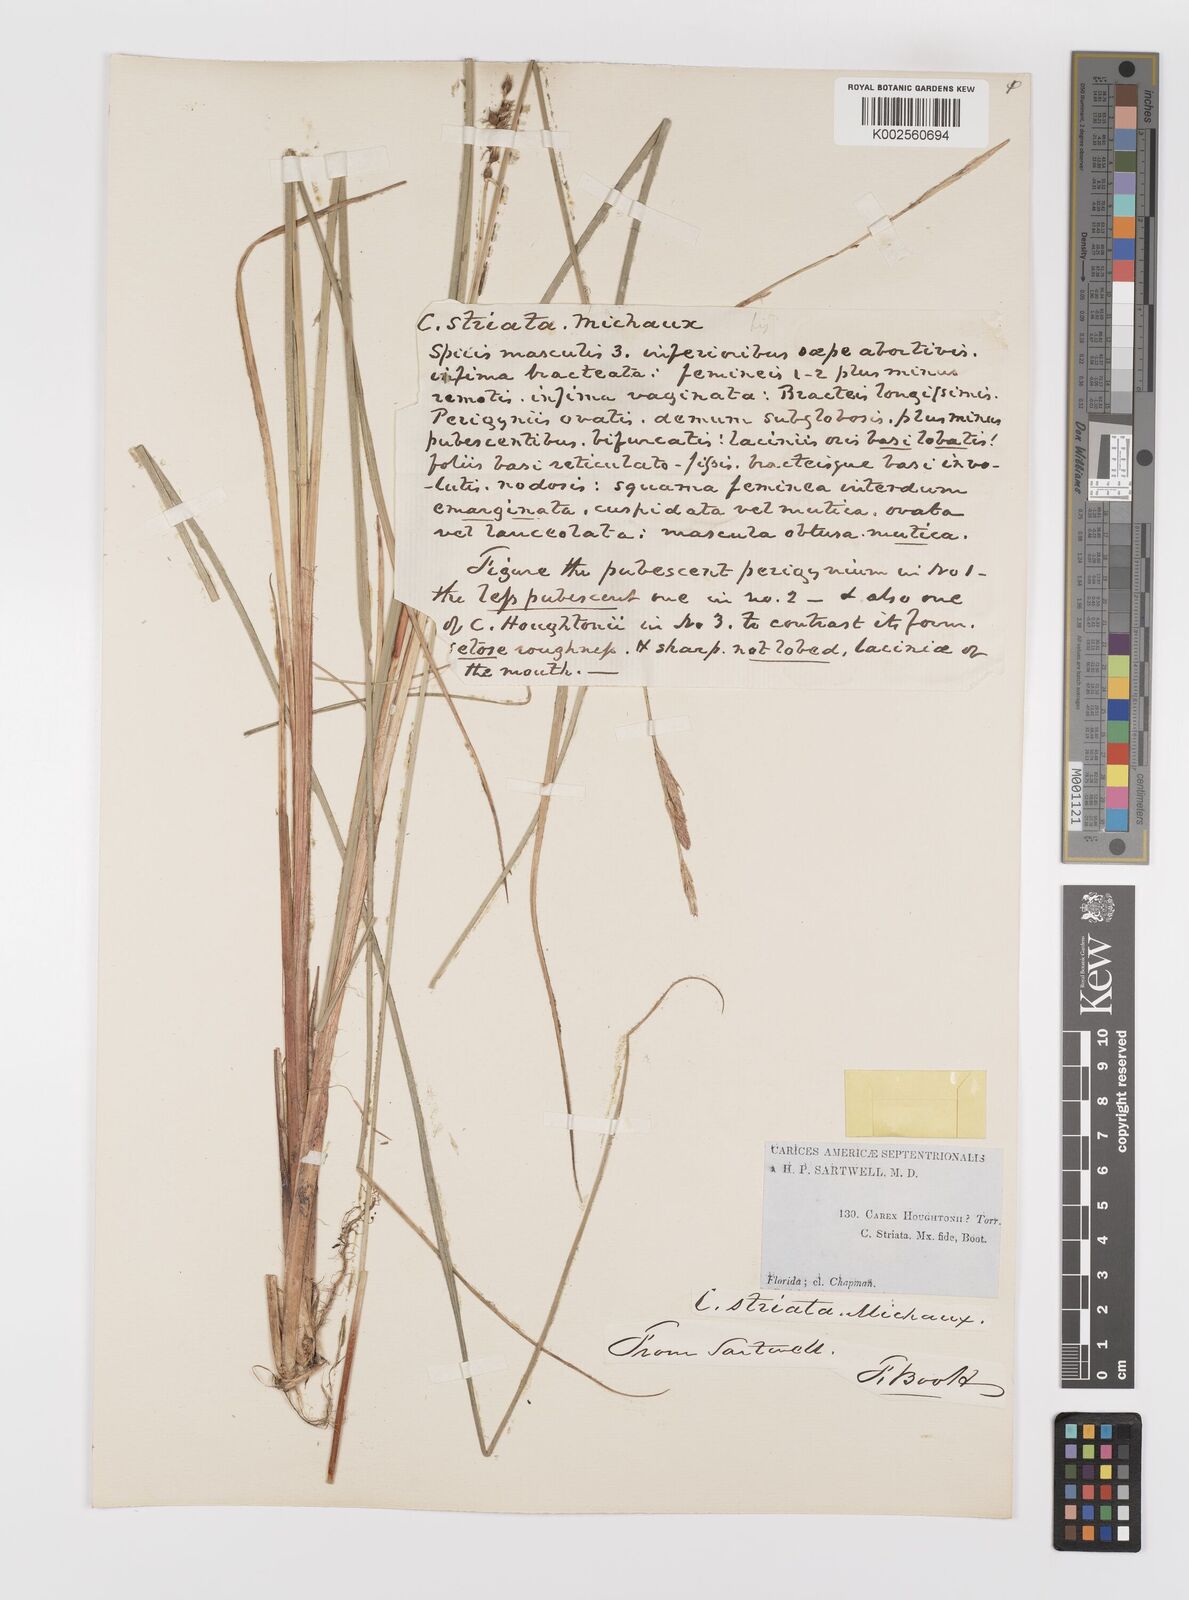 ROYAL BOTANIC GARDENS KEW
K002560694
C. striata. Michaux
Spicis masculis 3. inferioribus sæpe abortivis.
infima bracteata: femineis 1-2 plus minus
remotis. infima vaginata: Bracteis longissimis.
Perigyniis ovatis. demum subglobosis. plus minus
pubescentibus. bifurcatis! laciniis oris basi lobatis!
foliis basi reticulato-fissis. bracteisque basi invo-
lutis. nodosis: squama feminea interdum
emarginata. cuspidata vel mutica. ovata
vel lanceolata: mascula obtusa. mutica.
Figure the pubescent perigynium in No 1-
the less pubescent one in no. 2 - & also one
of C. Houghtonii in No 3. to contrast its form.
setose roughness. & sharp. not lobed, laciniæ of
the mouth. —
CARICES AMERICÆ SEPTENTRIONALIS
a H. P. SARTWELL, M. D.
130. CAREX HOUGHTONII? Torr.
C. Striata. Mx. fide, Boot.
Florida; cl. Chapman.
C. striata. Michaux.
From Sartwell.
F. Boott
inches
Density
Don Williams
M001121
centimeters
Kew
Royal Botanic Gardens
0 1 2 3 4 5 6 7 8 9 10
cm
copyright reserved